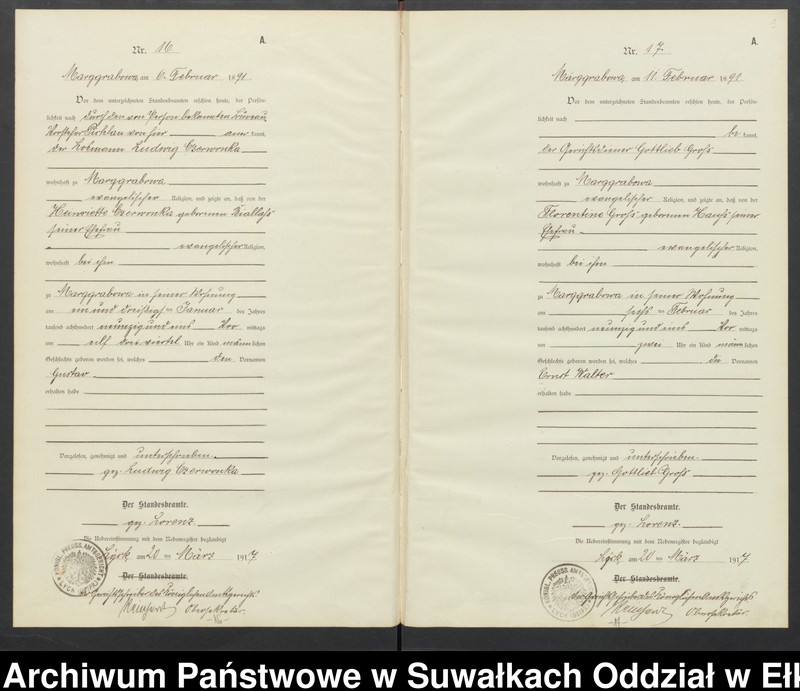 A.
Nr. 16
Marggrabowa am 6. Februar 1891
Vor dem unterzeichneten Standesbeamten erschien heute, der Persön-
lichkeit nach durch den von Person bekannten Büreau
Vorsteher von hier kannt,
der Ludwig Czerwonka
wohnhaft zu Marggrabowa
evangelischer Religion, und zeigte an, daß von der
Henriette Czerwonka geborenen Biallaß
seiner Ehefrau
evangelischer Religion,
wohnhaft bei ihm
zu Marggrabowa in seiner Wohnung
am ein und dreißigsten Januar des Jahres
tausend achthundert neunzig und eins Vor mittags
um elf drei viertel Uhr ein Kind männlichen
Geschlechts geboren worden sei, welches den Vornamen
Gustav
erhalten habe
Vorgelesen, genehmigt und unterschrieben.
gez. Ludwig Czerwonka
Der Standesbeamte.
gez. Lorenz
Die Uebereinstimmung mit dem Nebenregister beglaubigt
Lyck am 20 ten März 1917
Der Standesbeamte.
Der Gerichtsschreiber des Königlichen Amtsgerichts
Obersekretär
KÖNIGL. PREUSS. AMTSGERICHT
LYCK
A.
Nr. 17
Marggrabowa am 11. Februar 1891
Vor dem unterzeichneten Standesbeamten erschien heute, der Persön-
lichkeit nach
be kannt,
der Gerichtsdiener Gottlieb Groß
wohnhaft zu Marggrabowa
evangelischer Religion, und zeigte an, daß von der
Florentine Groß geborenen seiner
Ehefrau
evangelischer Religion,
wohnhaft bei ihm
zu Marggrabowa in seiner Wohnung
am sechsten Februar des Jahres
tausend achthundert neunzig und eins Vor mittags
um zwei Uhr ein Kind männlichen
Geschlechts geboren worden sei, welches die Vornamen
Ernst Walter
erhalten habe
Vorgelesen, genehmigt und unterschrieben
gez. Gottlieb Groß
Der Standesbeamte.
gez. Lorenz.
Die Uebereinstimmung mit dem Nebenregister beglaubigt
Lyck am 20 ten März 1917.
Der Standesbeamte.
Der Gerichtsschreiber des Königlichen Amtsgerichts
Obersekretär
KÖNIGL. PREUSS. AMTSGERICHT
LYCK
Archiwum Państwowe w Suwałkach Oddział w Eł